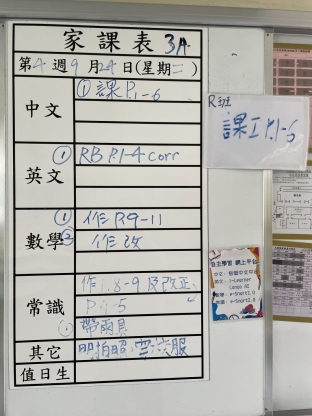 家課表 3A
第4週9月24日(星期二)
中文
① 課P.1-6
英文
① RB P.1-4 corr
數學
① 作P.9-11
② 作改
常識
作P.8-9及改正
P.4-5
帶雨具
其它
明拍照,穿
服
值日生
R班
課工P.1-6
自主學習 網上平台